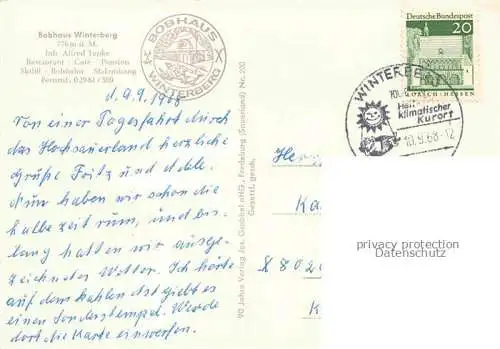 Bobhaus Winterberg
776 m ü. M.
Inh. Alfred Tepke
Restaurant - Café - Pension
Skilift - Bobbahn - Skisprung
Fernruf: 02981 / 509
BOBHAUS
WINTERBERG
Deutsche Bundespost
20
LORSCH · HESSEN
WINTERBERG
Heilklimatischer
Kurort
10.9.68-12
d. 9.9.1968
Von einer Tagesfahrt durch
das Hochsauerland herzliche
Grüße Fritz und Adele.
Nun haben wir schon die
halbe Zeit rum, und bis-
lang hatten wir ausge-
zeichnetes Wetter. Ich hörte
auf dem kahlen Ast gibt es
einen Sonderstempel. Werde
dort die Karte einwerfen.
90 Jahre Verlag Jos. Grobbel oHG., Fredeburg (Sauerland) Nr. 200
Gesetzl. gesch.
Herrn
Ka
802
K
privacy protection
Datenschutz